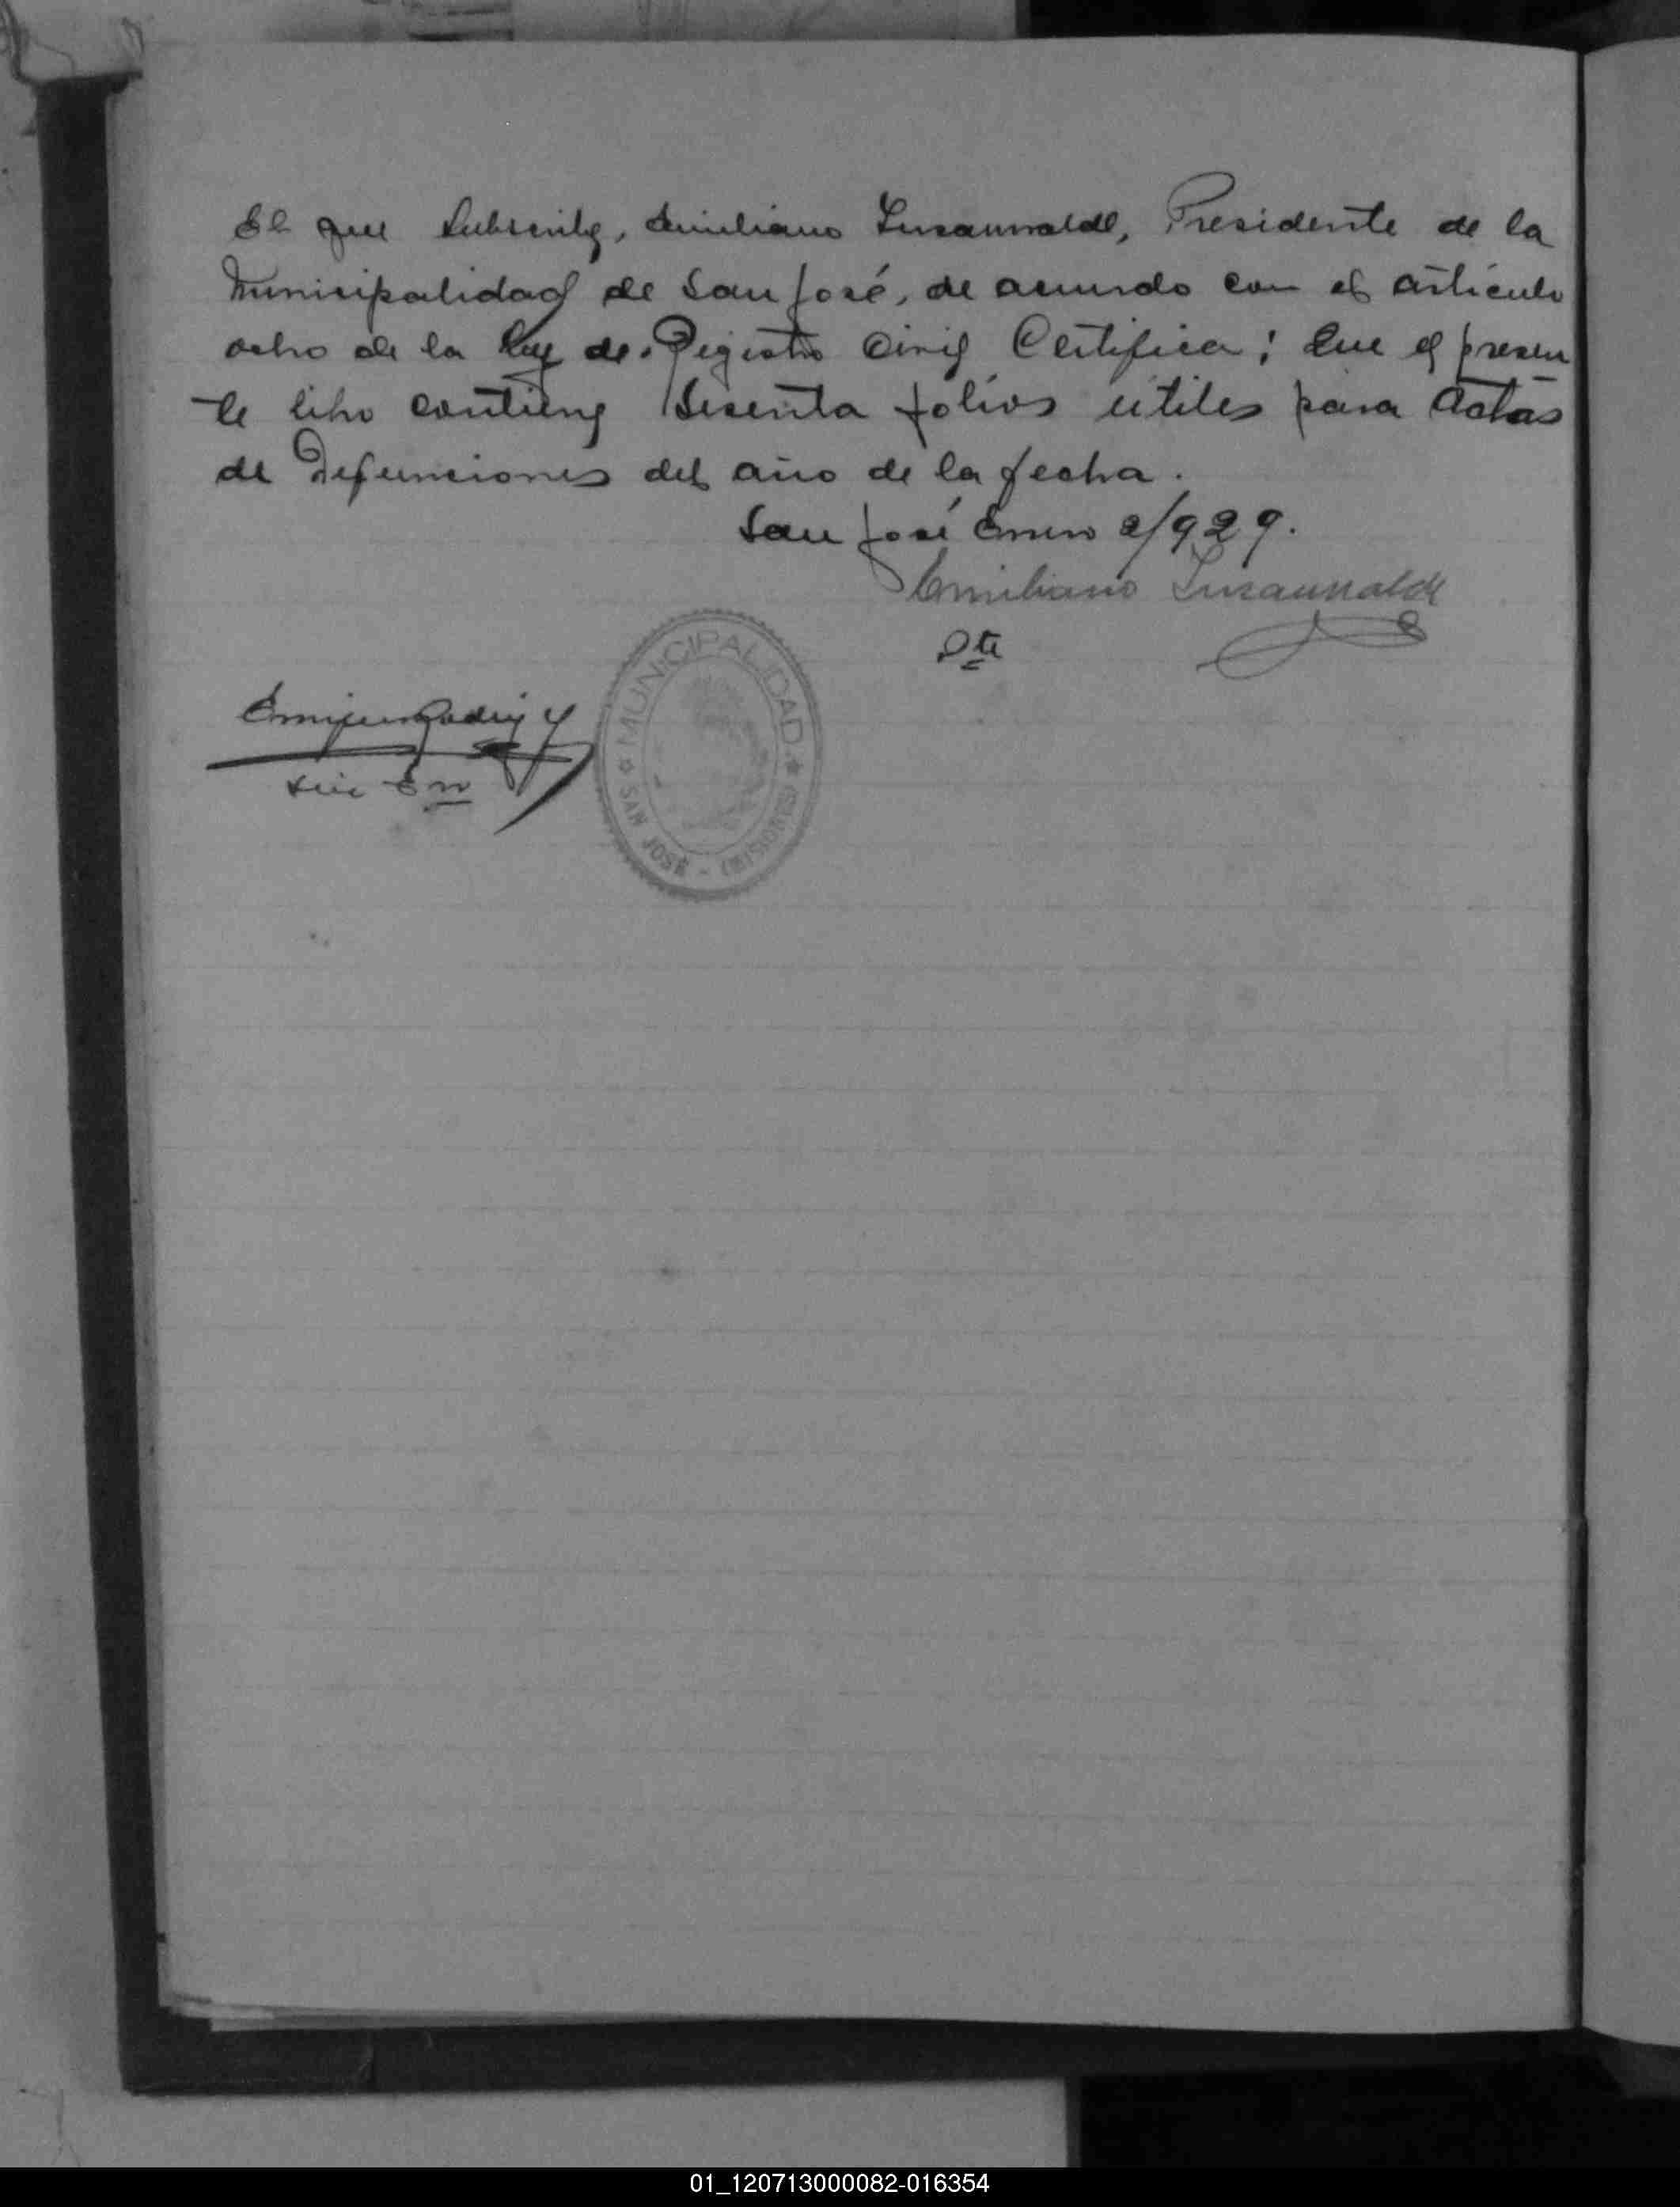 El que Subscribe, Emiliano Insaurralde, Presidente de la
Municipalidad de San José, de acuerdo con el artículo
ocho de la Ley de Registro Civil Certifica; Que el presen
te libro contiene Sesenta folios útiles para Actas
de Defunciones del año de la fecha.
San José Enero 2/929.
Emiliano Insaurralde
Pte
MUNICIPALIDAD
SAN JOSÉ - (MISIONES)
01_120713000082-016354